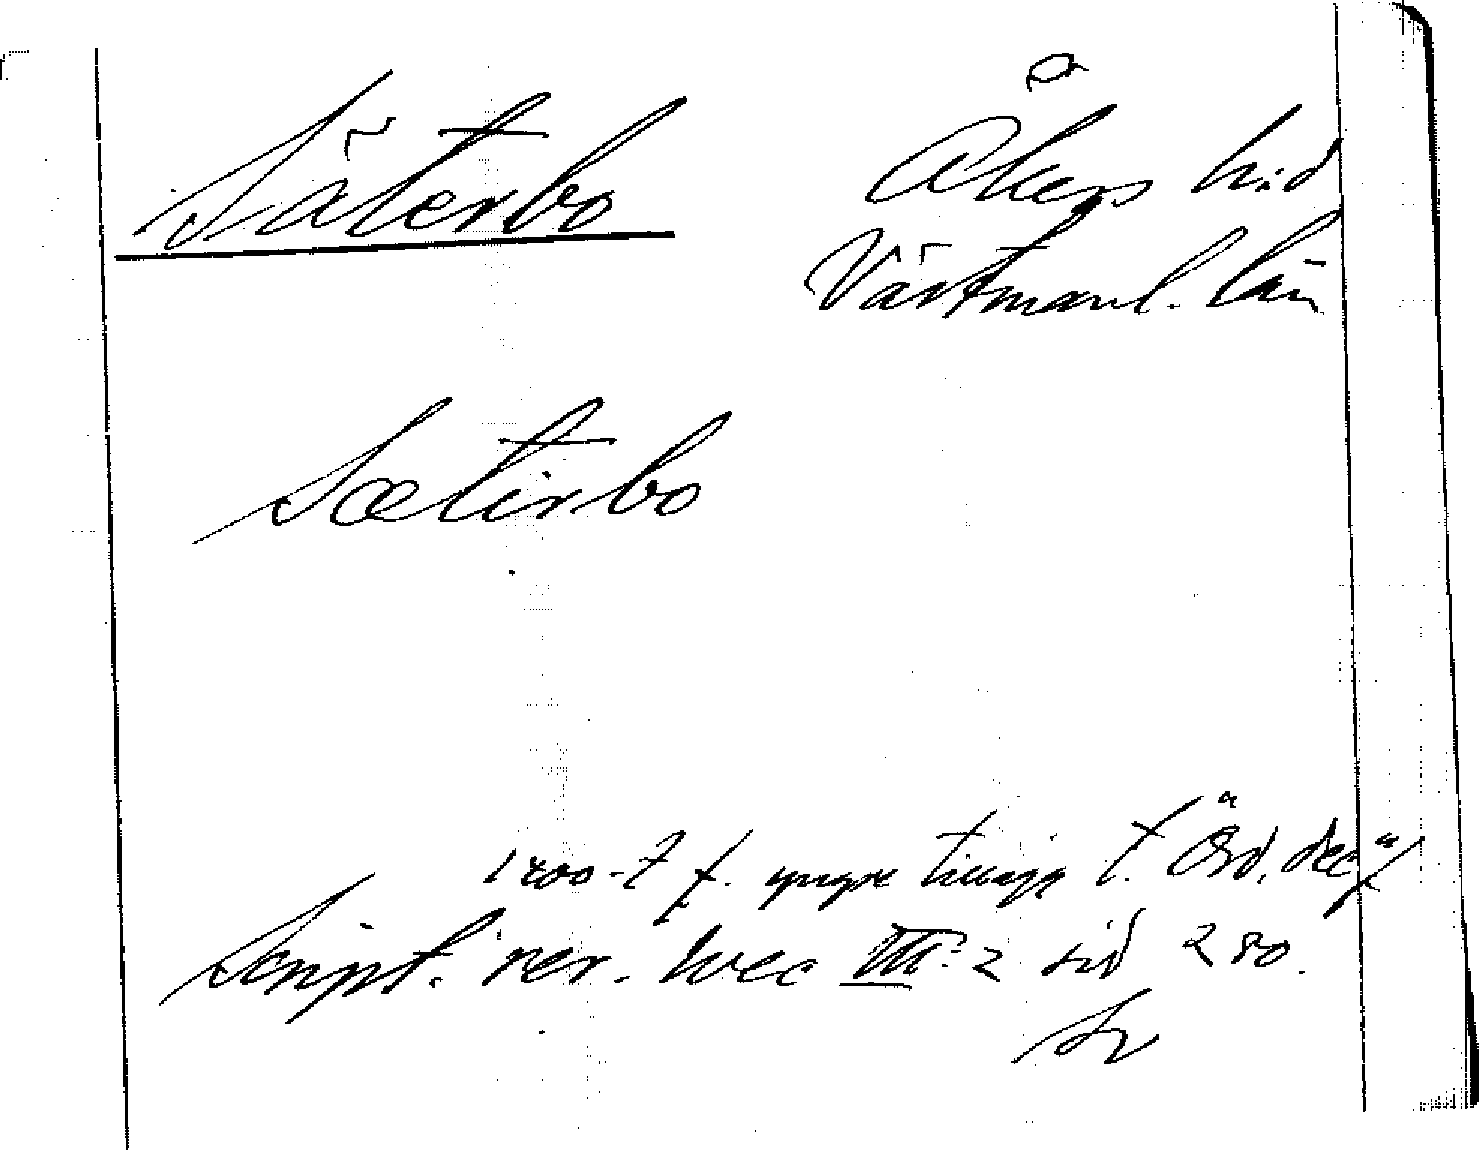 Säterbo
Åkers hd
Västmanl. län
Sæterbo
1400-t f. yngre tillägg t. "Örd. dec."
Script. rer. svec III:2 sid 280.